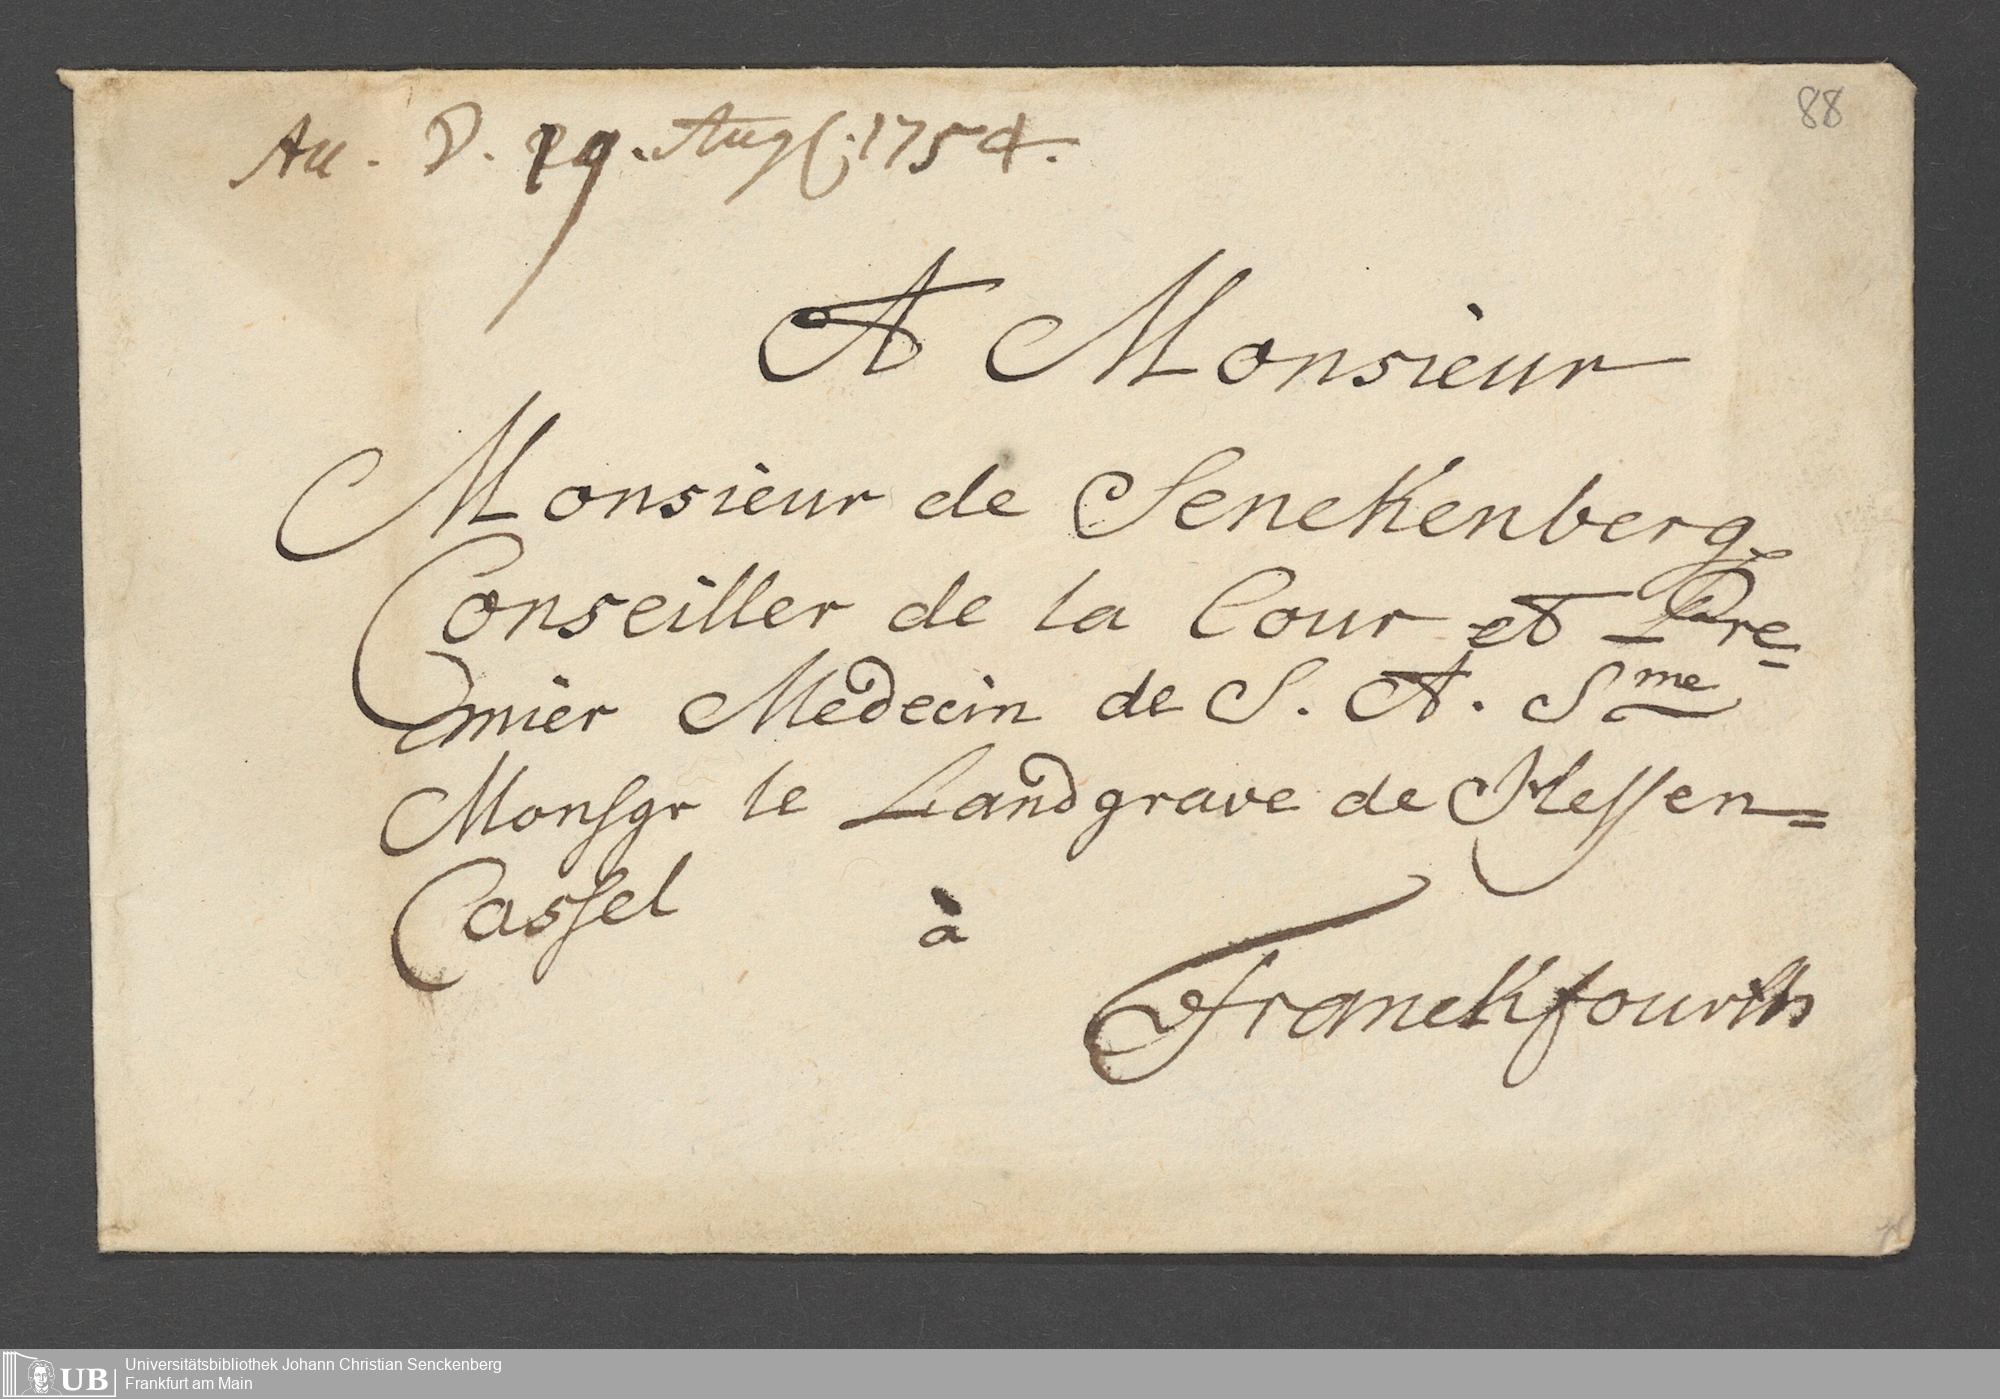 88
Au. D. 29. Aug. 1754.
A Monsieur
Monsieur de Senckenberg
Conseiller de la Cour et Pre=
mier Medecin de S. A. Sme
Monsgr le Landgrave de Hessen=
Cassel à
Franckfourth
UB Universitätsbibliothek Johann Christian Senckenberg
Frankfurt am Main